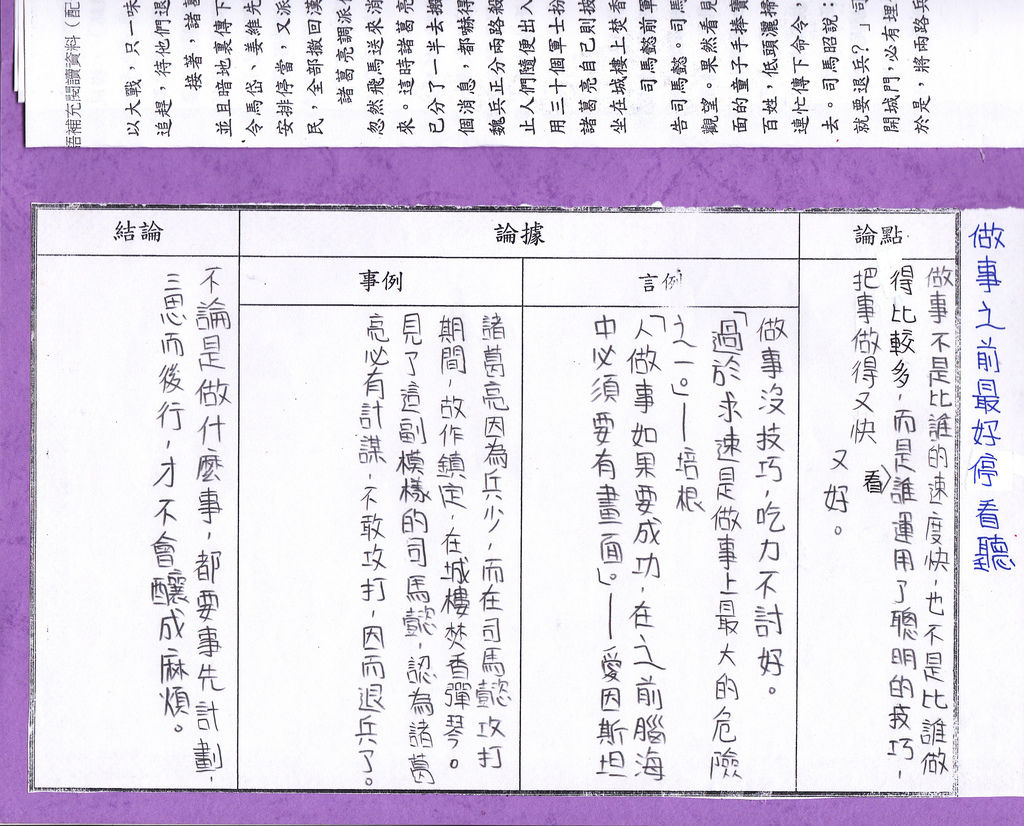 語補充閱讀資料（配
以大戰，只一味
追趕，待他們退
接著，諸葛
並且暗地裏傳下
令馬岱、姜維先
安排停當，又派
民，全部撤回漢
諸葛亮調派
忽然飛馬送來消
來。這時諸葛亮
已分了一半去搬
個消息，都嚇得
魏兵正分兩路殺
止人們隨便出入
用三十個軍士扮
諸葛亮自己則披
坐在城樓上焚香
司馬懿前軍
告司馬懿。司馬
觀望。果然看見
面的童子手捧寶
百姓，低頭灑掃
連忙傳下命令，
去。司馬昭說：
就要退兵？」司
開城門，必有埋
於是，將兩路兵
做事之前最好停看聽
論點
做事不是比誰的速度快，也不是比誰做
得比較多，而是看誰運用了聰明的技巧，
把事做得又快又好。
論據
言例
做事沒技巧，吃力不討好。
「過於求速是做事上最大的危險
之一。」——培根
「人做事如果要成功，在之前腦海
中必須要有畫面」。——愛因斯坦
事例
諸葛亮因為兵少，而在司馬懿攻打
期間，故作鎮定，在城樓焚香彈琴。
見了這副模樣的司馬懿，認為諸葛
亮必有計謀，不敢攻打，因而退兵了。
結論
不論是做什麼事，都要事先計劃，
三思而後行，才不會釀成麻煩。